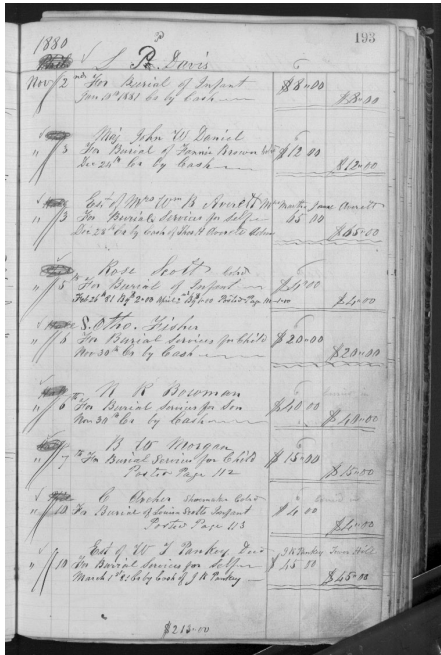 1880 193
S P Davis
Nov 2 nd For Burial of Infant $8-00
Jan 10th 1881 Co by Cash $8-00
Maj John W Daniel
" 3 For Burial of Fannie Brown Cold $12 00
Dec 24th Co by Cash $12-00
Est of Mrs Wm B Averett Mrs Martha Jane Averett
" 3 For Burial Services for self 65 00
Dec 28th Co by Cash of $65-00
Rose Scott Cold
" 5 th For Burial of Infant $4-00
Feb 26th 81 By $2-00 April 2nd By Posted Page $4-00
S. Otho. Fisher
" 6 For Burial Services for Child $20-00
Nov 30th Co by Cash $20-00
N R Bowman
" 6 th For Burial services for Son $40.00
Nov 30th Co by Cash $40-00
B W Morgan
" 7 th For Burial Services for Child $15-00
Posted Page 112 $15-00
C Archer Shoemaker Cold
" 10 For Burial of Louisa Scotts Infant $4 00
Posted Page 113 $4-00
Est of W J Pankey Decd J R Pankey
" 10 For Burial Services for self $45 00
March 1st 81 Co by Cash of J R Pankey $45-00
$213-00